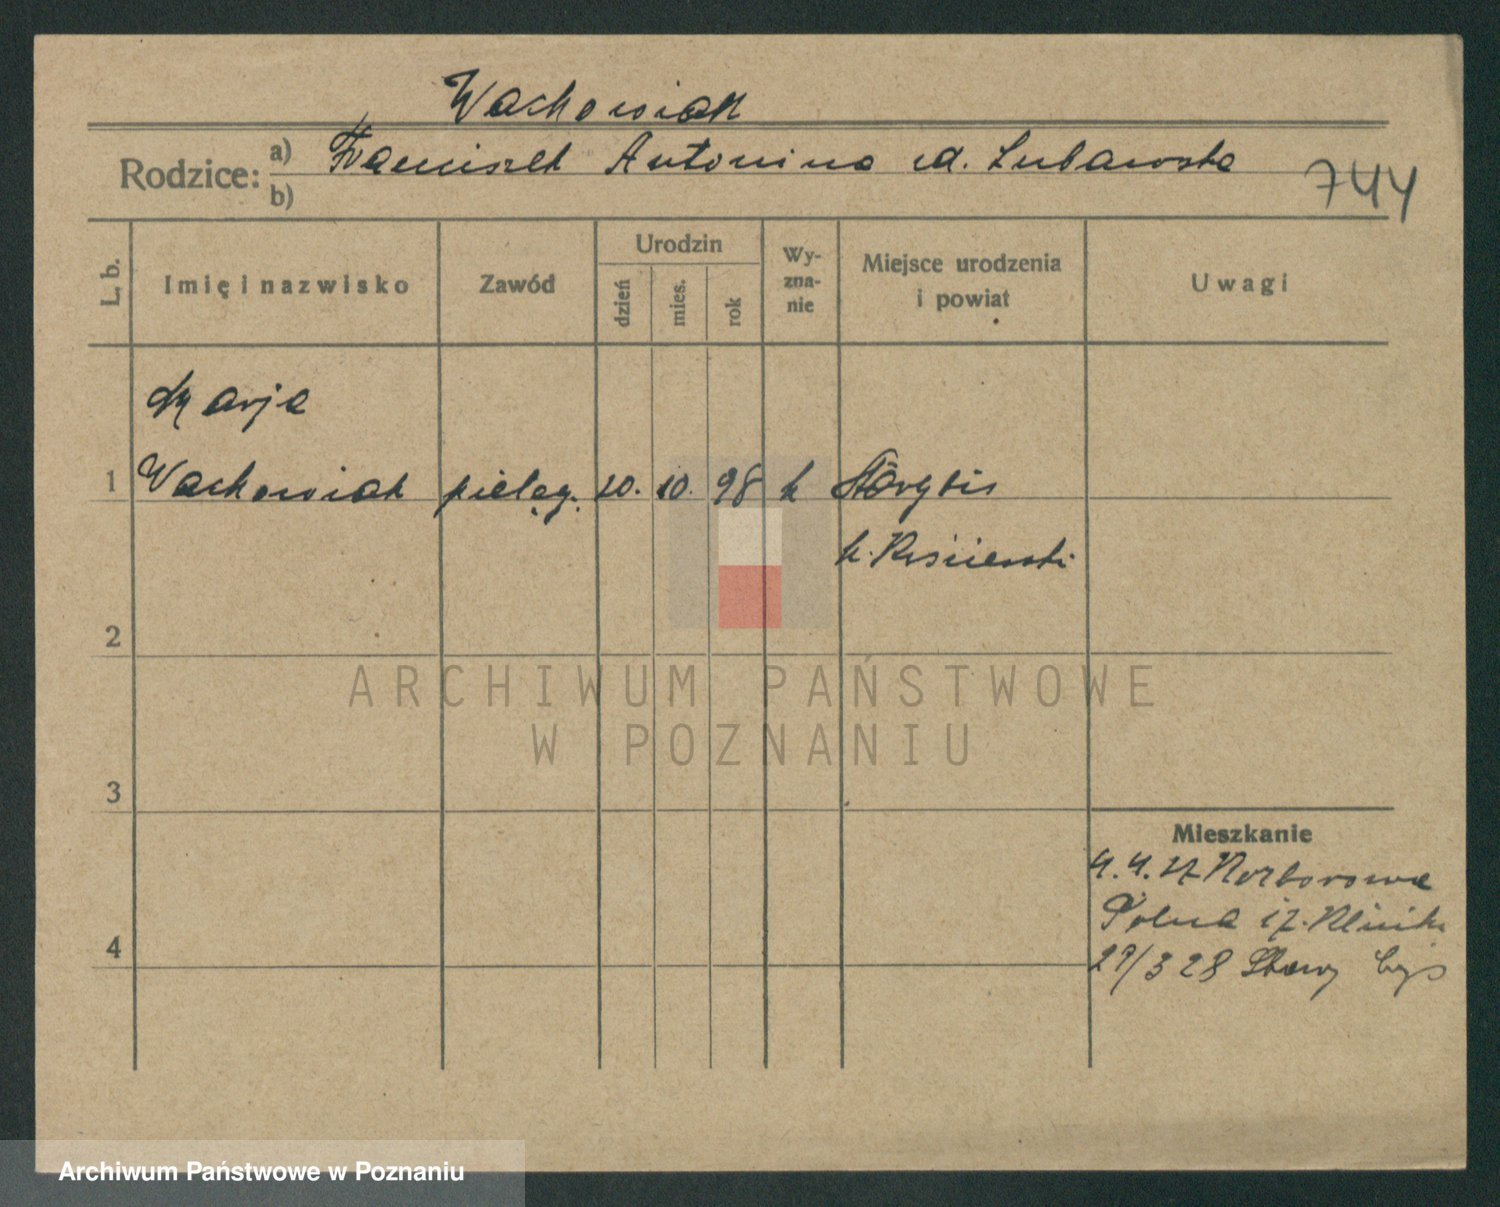 Wachowiak
Rodzice: a) Franciszek Antonina Lubawska
b)
744
L. b. Imię i nazwisko Zawód Urodzin dzień mies. rok Wy-zna-nie Miejsce urodzenia i powiat Uwagi
Marja
1 Wachowiak pielęg. 10. 10. 98 k
2
ARCHIWUM PAŃSTWOWE
W POZNANIU
3
Mieszkanie
4. 4. 27
Polna
4
27/3 28
Archiwum Państwowe w Poznaniu